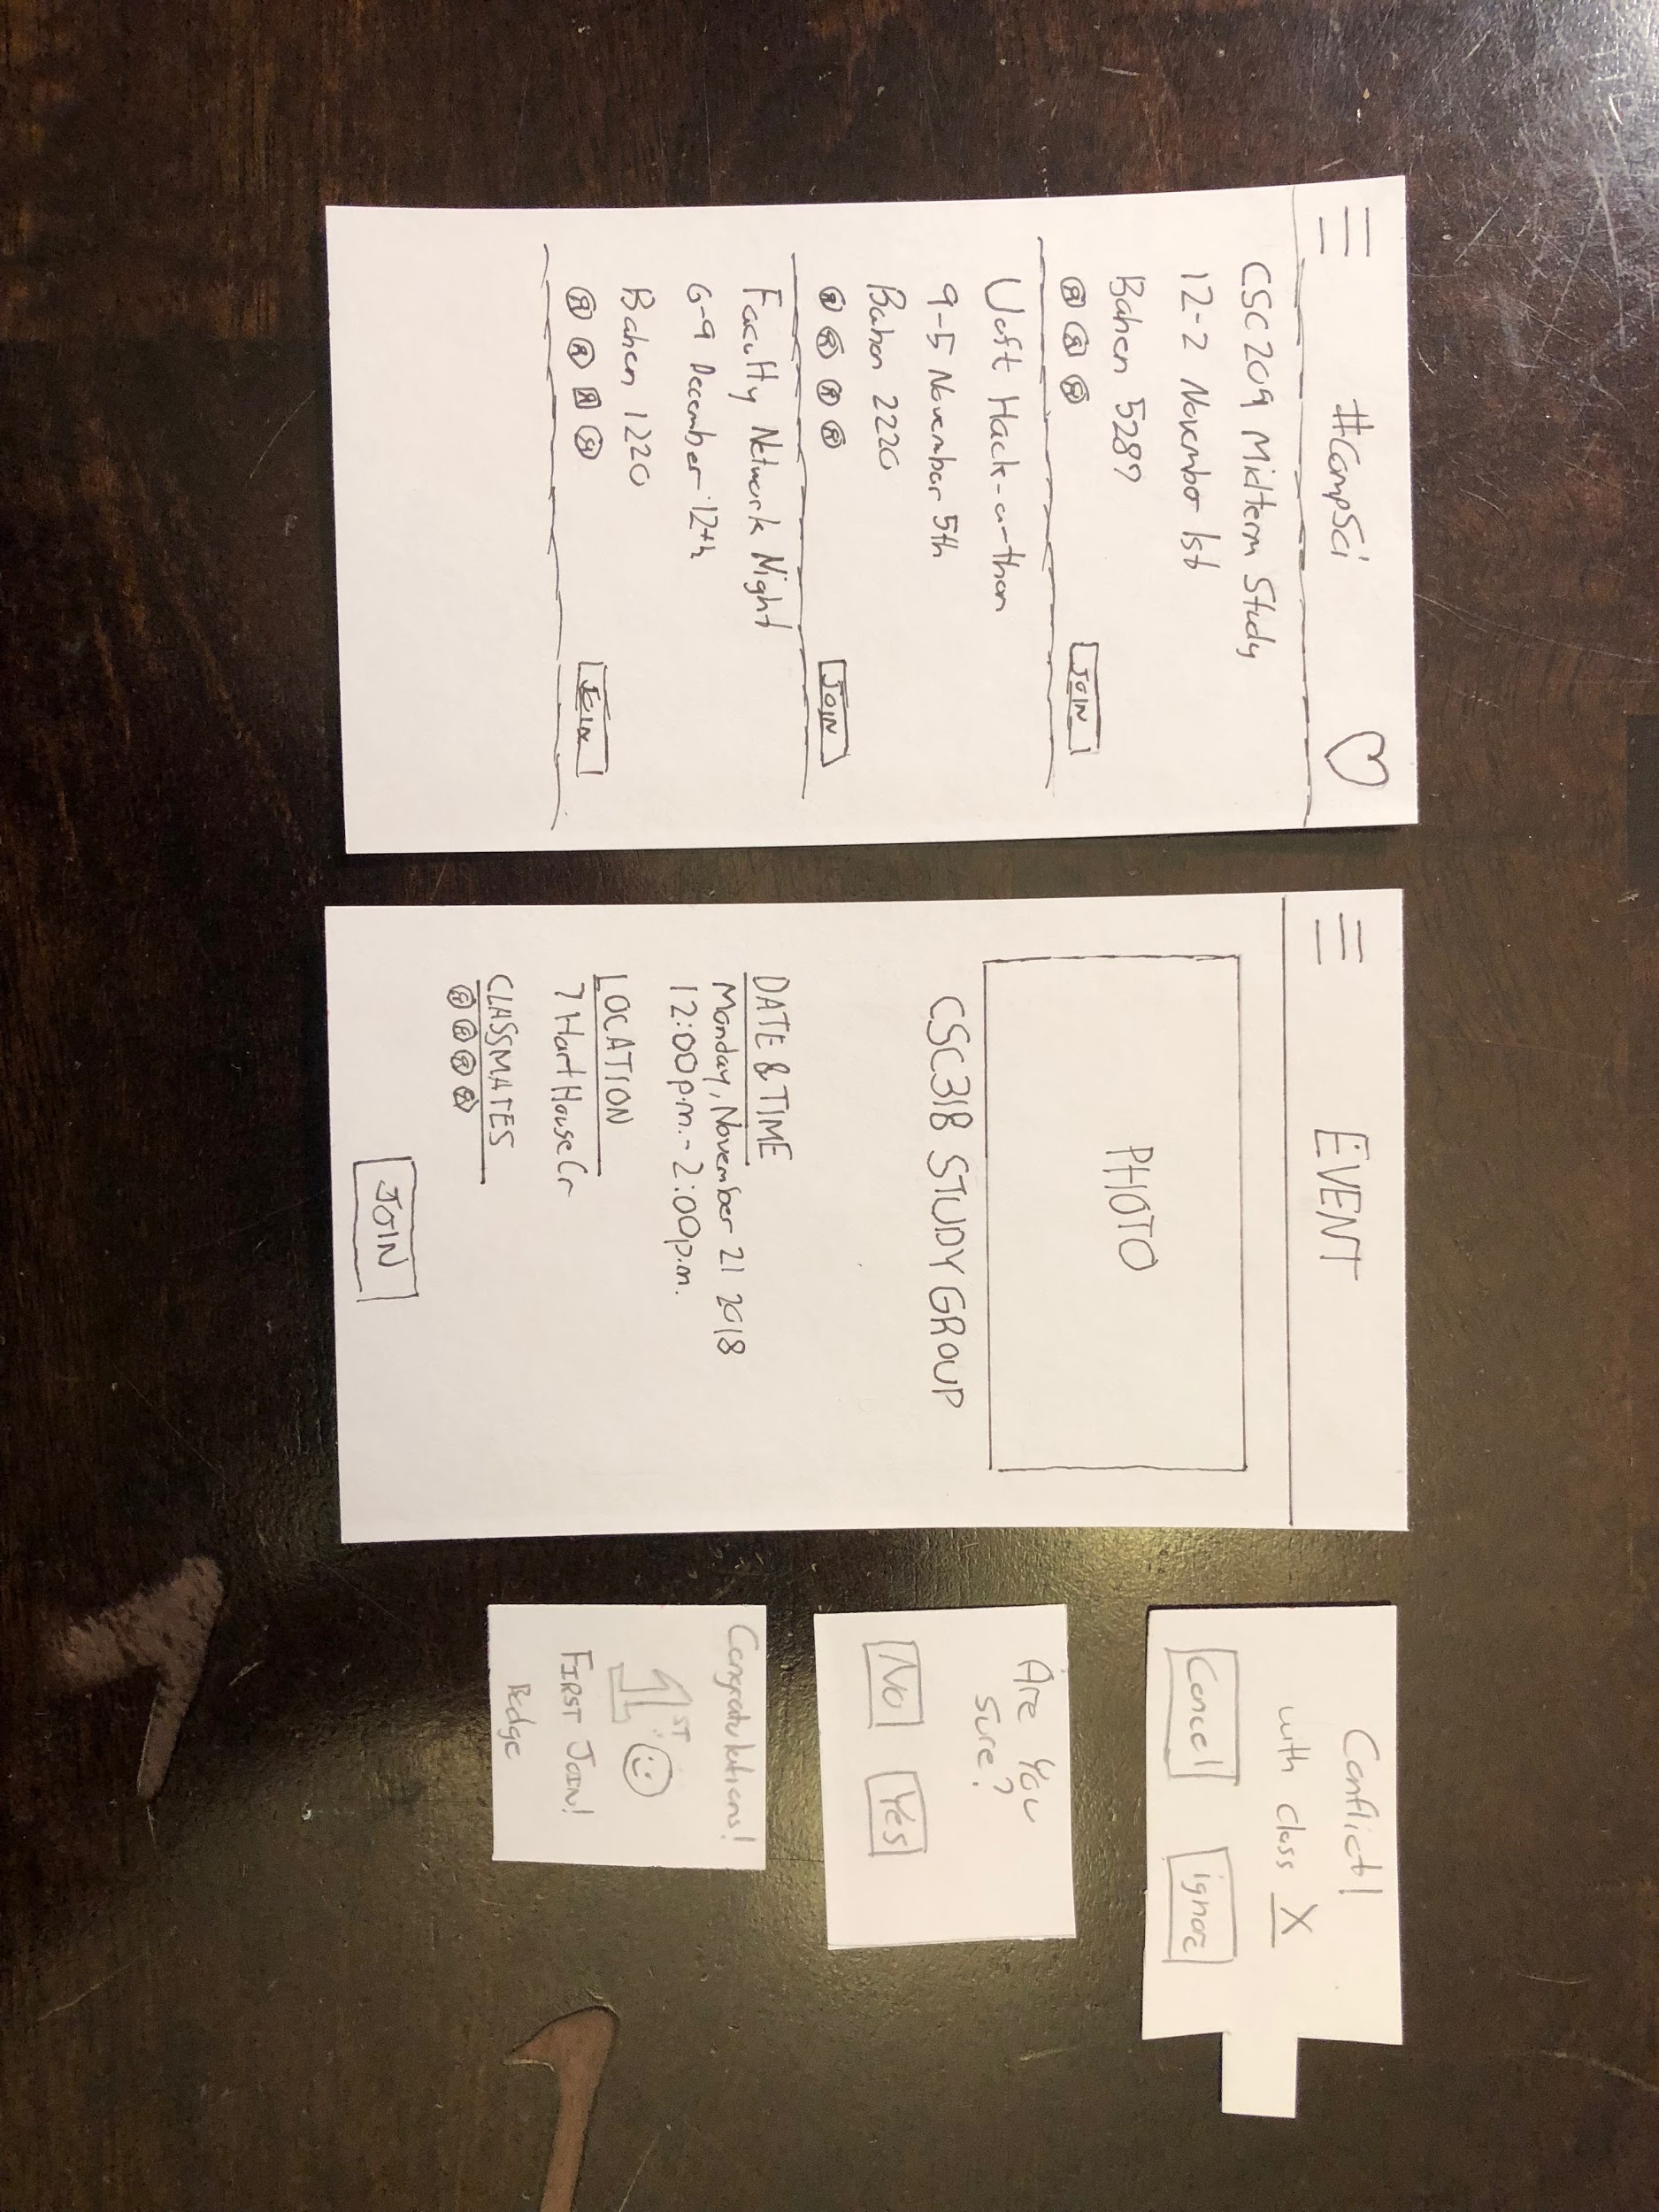 #CompSci
CSC209 Midterm Study
12-2 November 1st
Bahen 5287
JOIN
UofT Hack-a-thon
9-5 November 5th
Bahen 2220
JOIN
Faculty Network Night
6-9 December 12th
Bahen 1220
JOIN
EVENT
PHOTO
CSC318 STUDY GROUP
DATE & TIME
Monday, November 21 2018
12:00p.m.-2:00p.m.
LOCATION
7 Hart House Cr
CLASSMATES
JOIN
Conflict!
with class X
Cancel ignore
Are You
sure?
No Yes
Congratulations!
1ST
FIRST JOIN!
Badge